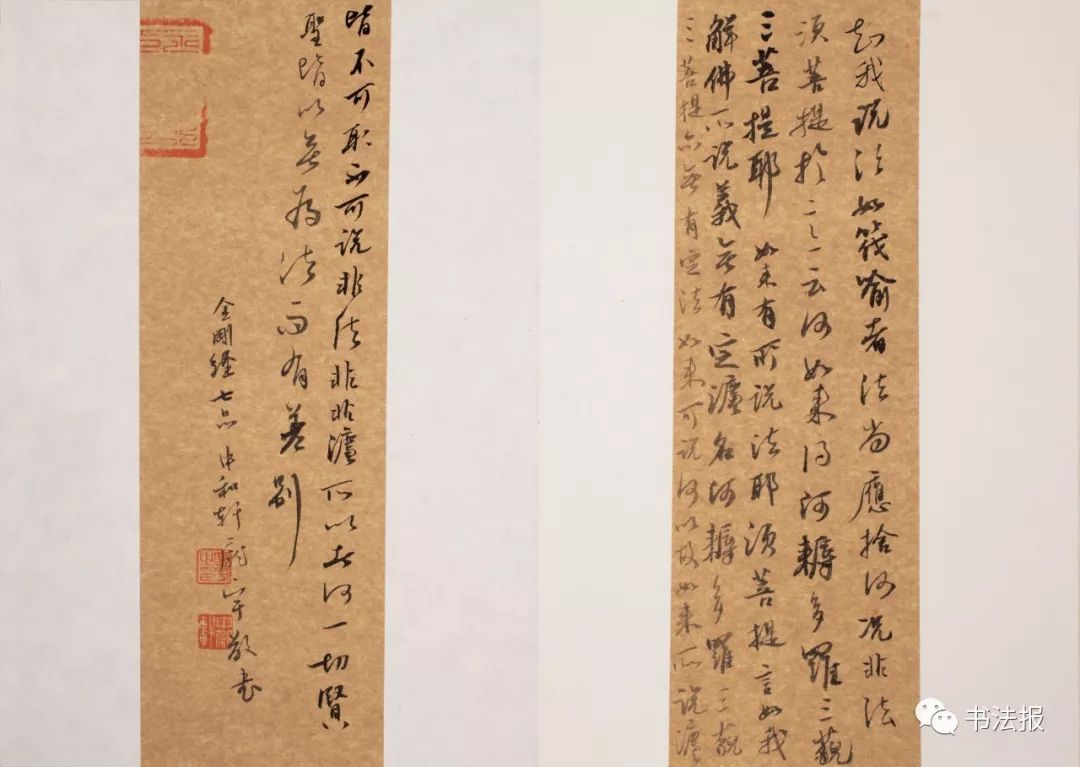 知我說法如筏喻者法尚應捨何況非法
須菩提於意云何如來得阿耨多羅三藐
三菩提耶如來有所說法耶須菩提言如我
解佛所說義無有定灋名阿耨多羅三藐
三菩提亦無有定法如來可說何以故如來所說灋
皆不可取不可說非法非非灋所以者何一切賢
聖皆以無為法而有差別
金剛經七品中和軒敬書
书法报